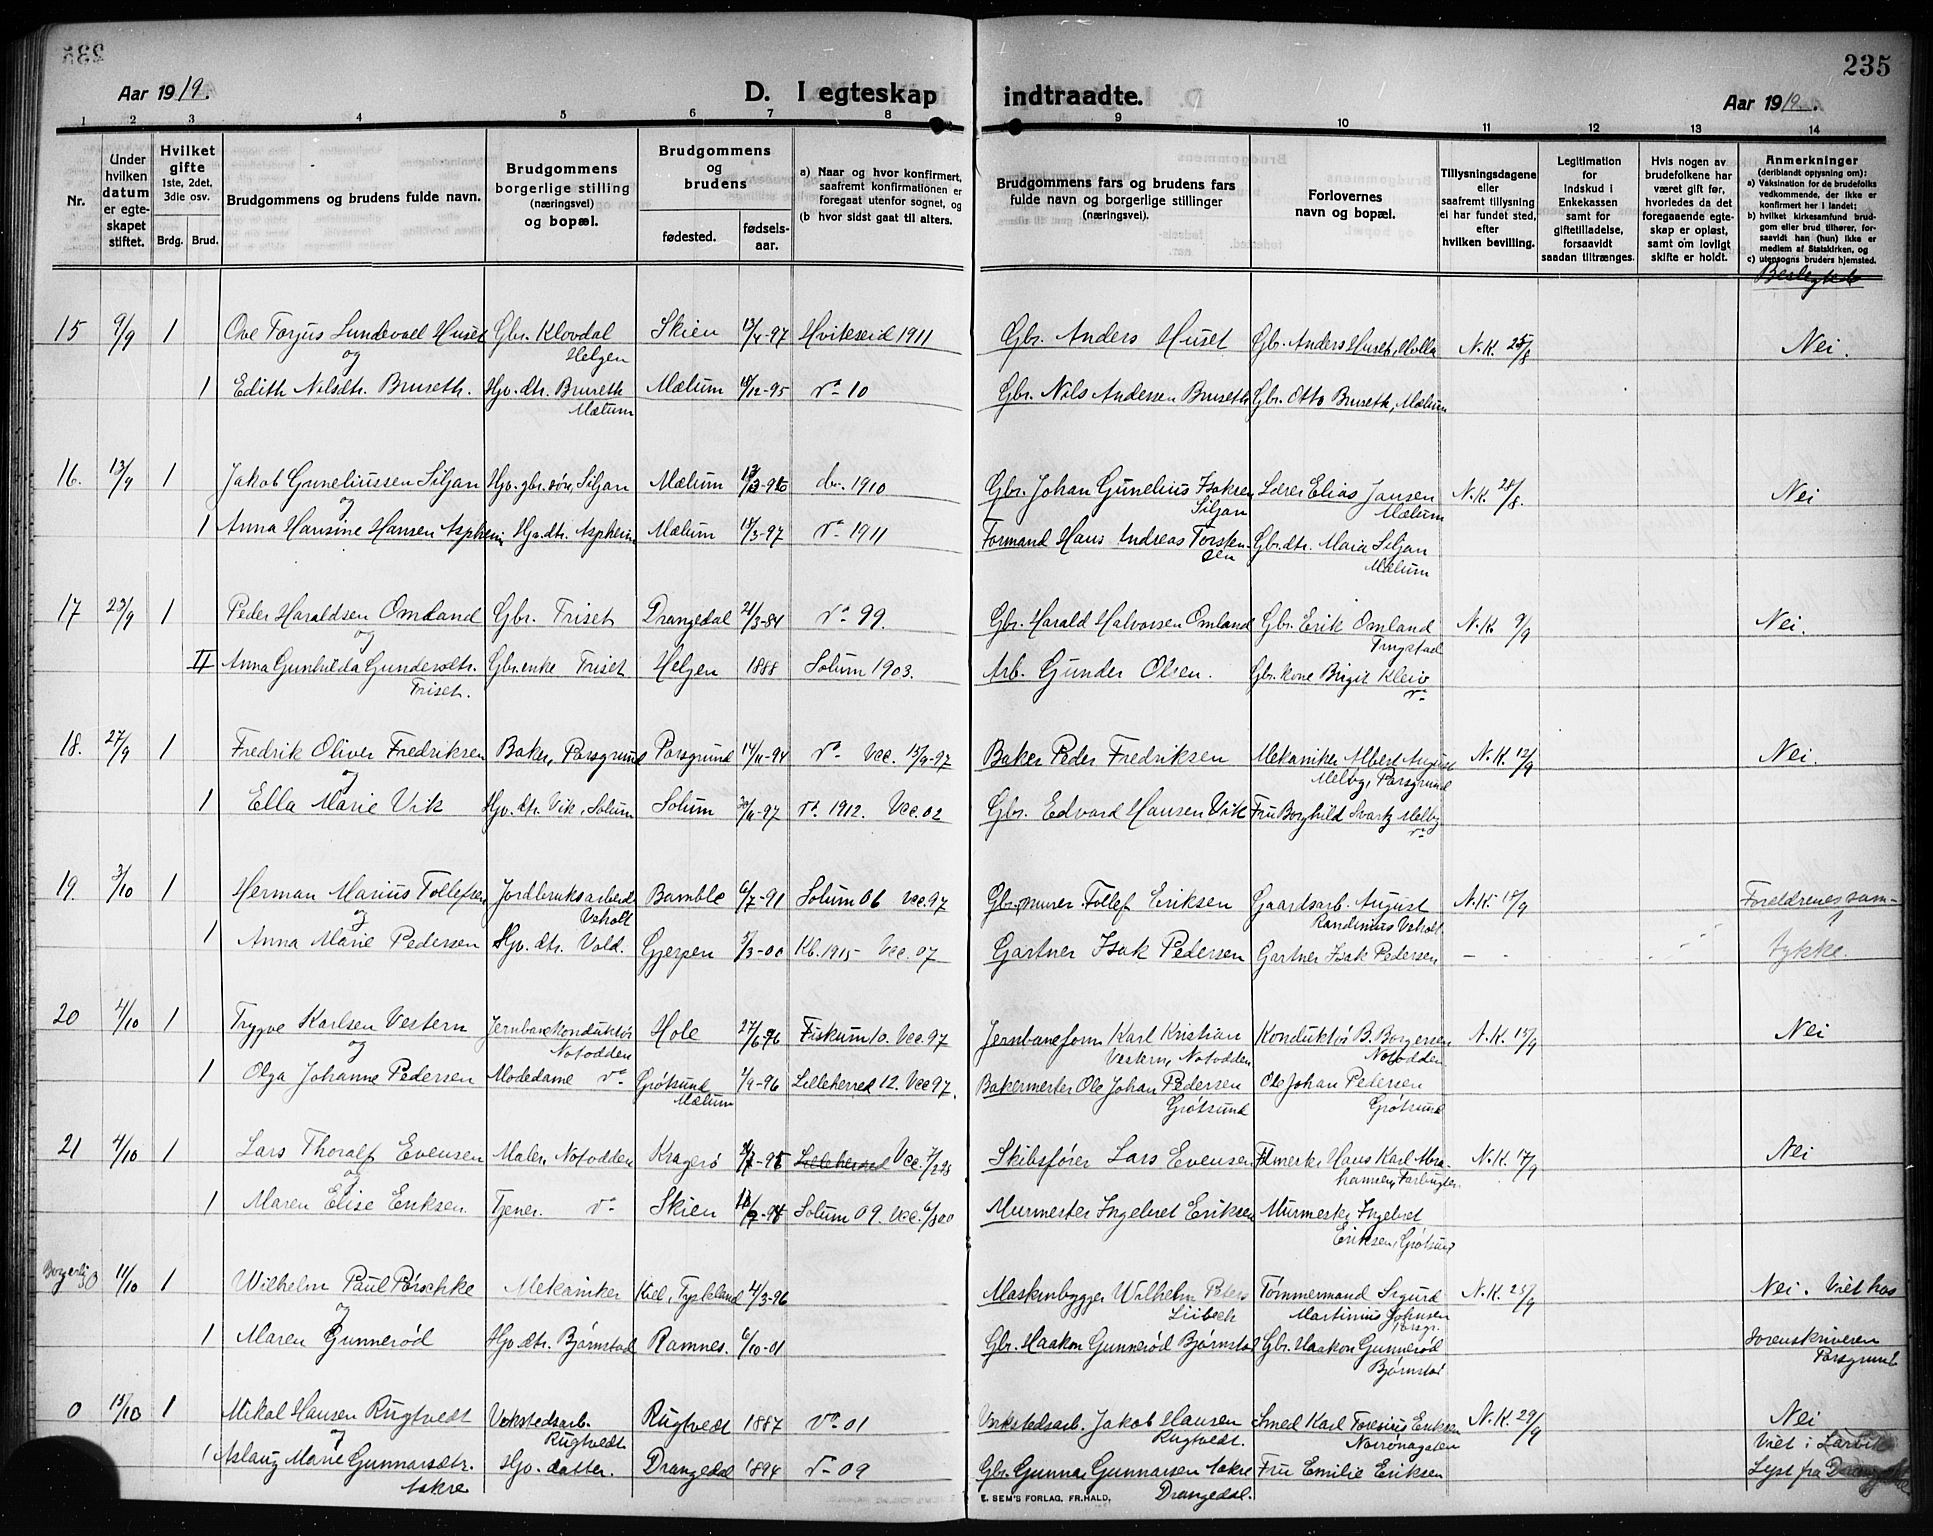 235
Aar 1919.
D. I egteskap indtraadte.
Aar 1919.
1 2 3 4 5 6 7 8 9 10 11 12 13 14
Nr.
Under hvilken datum er egteskapet stiftet.
Hvilket gifte 1ste, 2det, 3die osv.
Brdg. Brud.
Brudgommens og brudens fulde navn.
Brudgommens borgerlige stilling (næringsvei) og bopæl.
Brudgommens og brudens
fødested.
fødselsaar.
a) Naar og hvor konfirmert, saafremt konfirmationen er foregaat utenfor sognet, og
(b hvor sidst gaat til alters.
Brudgommens fars og brudens fars fulde navn og borgerlige stillinger (næringsvei).
Forlovernes navn og bopæl.
Tillysningsdagene eller saafremt tillysning ei har fundet sted, efter hvilken bevilling.
Legitimation for indskud i Enkekassen samt for giftetilladelse, forsaavidt saadan tiltrænges.
Hvis nogen av brudefolkene har været gift før, hvorledes da det foregaaende egteskap er opløst, samt om lovligt skifte er holdt.
Anmerkninger (deriblandt oplysning om):
a) Vaksination for de brudefolks vedkommende, der ikke er konfirmert her i landet;
b) hvilket kirkesamfund brudgom eller brud tilhører, forsaavidt han (hun) ikke er medlem af Statskirken, og
c) utensogns bruders hjemsted.
Beslegtede
15 9/9 1 Ove Torjus Lundevall Huset Gbr. Klovdal Helgen Skien 13/4-97 Hviteseid 1911 Gbr. Anders Huset Gbr. Anders Huset, Holla N.K. 25/8 Nei.
og
1 Edith Nilsdtr. Bruseth. Hjv. dtr. Bruseth Mælum Mælum 18/12-95 do 10 Gbr. Nils Andersen Bruseth Gbr. Otto Bruseth, Mælum
16. 13/9 1 Jakob Guneliussen Siljan Hjv. gbr. søn, Siljan Mælum do. 1910 Gbr. Johan Gunelius Isaksen Siljan Lærer Elias Jansen Mælum N.K. 28/8. Nei
og
1 Anna Hansine Hansen Aspheim Hjv. dtr. Aspheim Mælum 18/3-97 do 1911 Formand Hans Andreas Torstensen Gbr. dtr. Maria Siljan Mælum
17 23/9 1 Peder Haraldsen Omland Gbr. Friset Drangedal 21/3-84 do 99. Gbr. Harald Halvorsen Omland Gbr. Erik Omland N.K. 9/9 Nei.
og
II Anna Gunhilda Gundersdtr. Friset. Gbr. enke Friset Helgen 1888 Solum 1903. Arb. Gunder Olsen. Gbr. kone Birgit Kleiv do
18. 27/9 1 Fredrik Oliver Fredriksen Baker, Porsgrund Porsgrund 14/11-94 do Vcc. 15/9-97 Baker Peder Fredriksen Mekaniker Albert August Melby, Porsgrund N.K. 12/9 Nei.
og
1 Ella Marie Vik Hjv. dtr. Vik, Solum Solum do. 1912. Vcc. 02 Gbr. Edvard Hansen Vik Fru Borghild Svartz Melby do
19. 3/10 1 Herman Marius Tollefsen Jordbruksarbeid. Veholt Bamble 6/7-91 Solum 06 Vcc. 97 Gbr., murer Tollef Eriksen Gaardsarb. August Randinius Veholt N.K. 18/9 Foreldrenes samtykke.
og
1 Anna Marie Pedersen Hjv. dtr. Vold. Gjerpen 5/3-00 Kb. 1915 Vcc. 07 Gartner Isak Pedersen Gartner Isak Pedersen
20 4/10 1 Trygve Karlsen Vestern Jernbanekonduktør Notodden Hole Fiskum 10. Vcc. 97 Jernbaneform. Karl Kristian Vestern, Notodden Konduktør B. Borgersen Notodden N.K. 15/9 Nei
og
1 Olga Johanne Pedersen Modedame do Grøtsund Mælum 1/9-96 Lilleherred 12. Vcc 97. Bakermester Ole Johan Pedersen Grøtsund Ole Johan Pedersen Grøtsund
21 4/10 1 Lars Thoralf Evensen Maler, Notodden Kragerø Lilleherred Vcc. Skibsfører Lars Evensen Hans Karl Abrahamsen, N.K. 17/9 Nei
og
1 Maren Elise Eriksen. Tjener. do Skien Solum 09. Vcc. 6/8 00 Murmester Ingebret Eriksen Murmester Ingebret Eriksen, Grøtsund
Borgerlig 0 11/10 1 Wilhelm Paul Pørschke Mekaniker Kiel, Tyskland 4/3-96 Maskinbygger Wilhelm Lübeck Tømmermand Sigurd Martinius Johnsen Porsgr. N.K. 25/9 Nei. Viet hos
og
1 Maren Gunnerød Hjv. dtr. Bjørnstad Ramnes. 6/10-01 Gbr. Haakon Gunnerød Bjørnstad Gbr. Haakon Gunnerød Bjørnstad Sorenskriveren Porsgrund
0 15/10 1 Mikal Hansen Rugtvedt Verkstedsarb. Rugtvedt Rugtvedt 1887 do 01 Verkstedsarb. Jakob Hansen Rugtvedt. Smed Karl Eriksen N.K. 29/9 Nei
og
1 Aslaug Marie Gunnarsdtr. Aakre Hjv. datter. Drangedal 1894 do 09 Gbr. Gunnar Gunnarsen Aakre Drangedal. Fru Emilie Eriksen Viet i Larvik Lyst fra Drangedal
E. SEM'S FORLAG, FR.HALD.